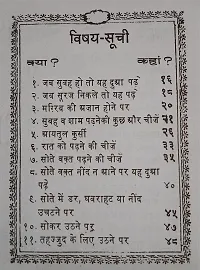 विषय-सूची
क्या ? कहां ?
१. जब सुबह हो तो यह दुआ पढ़ें १६
२. जब सूरज निकले तो यह पढ़ें १८
३. मग़रिब की अज़ान होने पर २०
४. सुबह व शाम पढ़नेकी कुछ और चीजें २१
५. आयतुल कुर्सी २६
६. रात को पढ़ने की चीजें ३३
७. सोते वक्त पढ़ने की चीजें ३५
८. सोते वक्त नींद न आने पर यह दुआ
पढ़ें ४०
९. सोते में डर, घबराहट या नींद
उचटने पर ४५
१०. सोकर उठने पर ४७
११. तहज्जुद के लिए उठने पर ४८